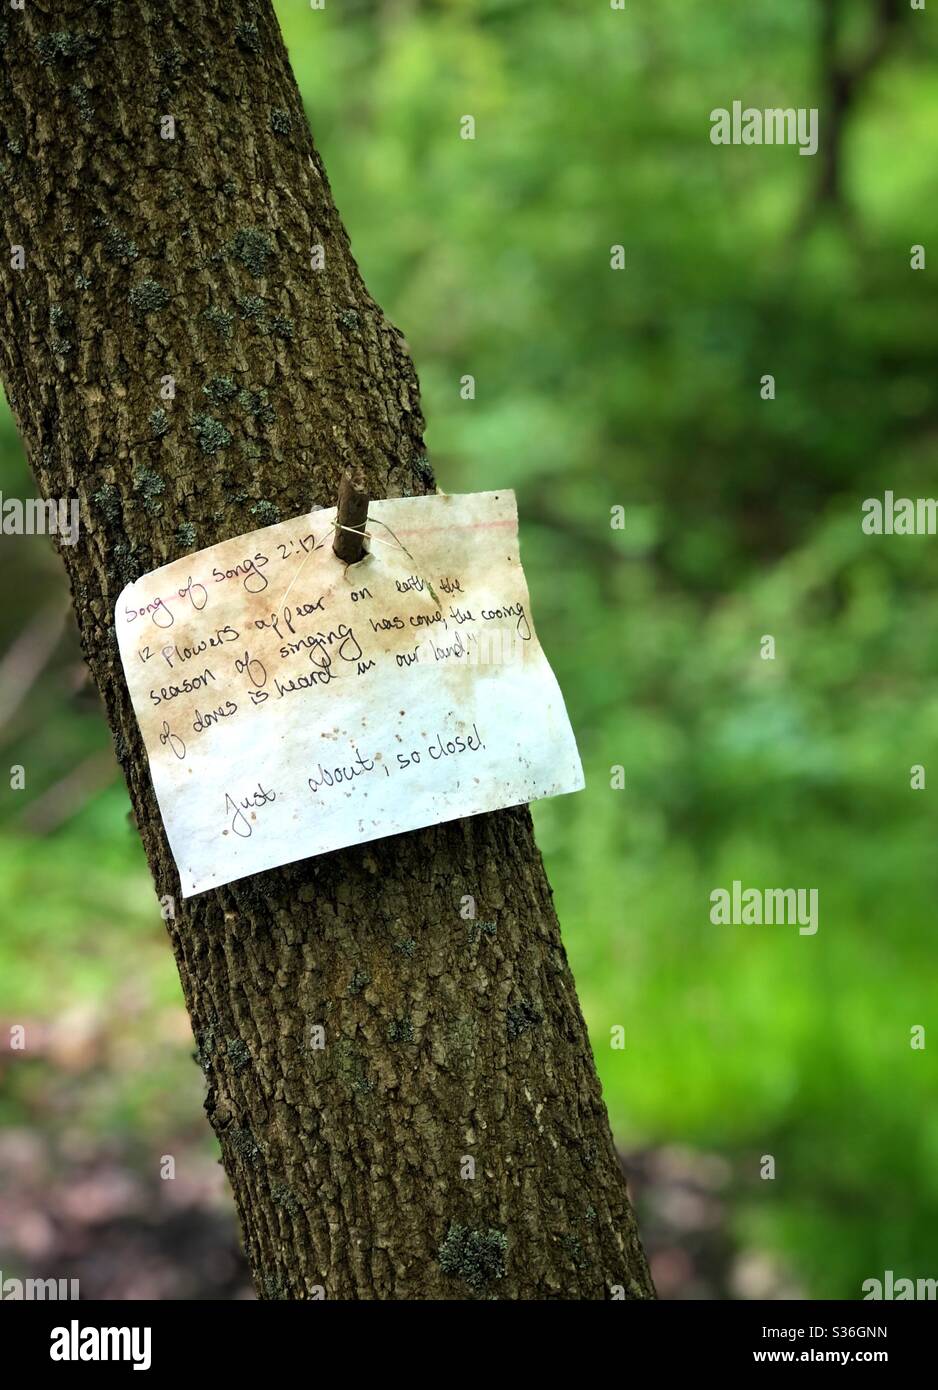 Song of Songs 2:12
12 Flowers appear on earth; the
season of singing has come, the cooing
of doves is heard in our land."
Just about, so close!
alamy
alamy
alamy
alamy
alamy
alamy
alamy
Image ID: S36GNN
www.alamy.com